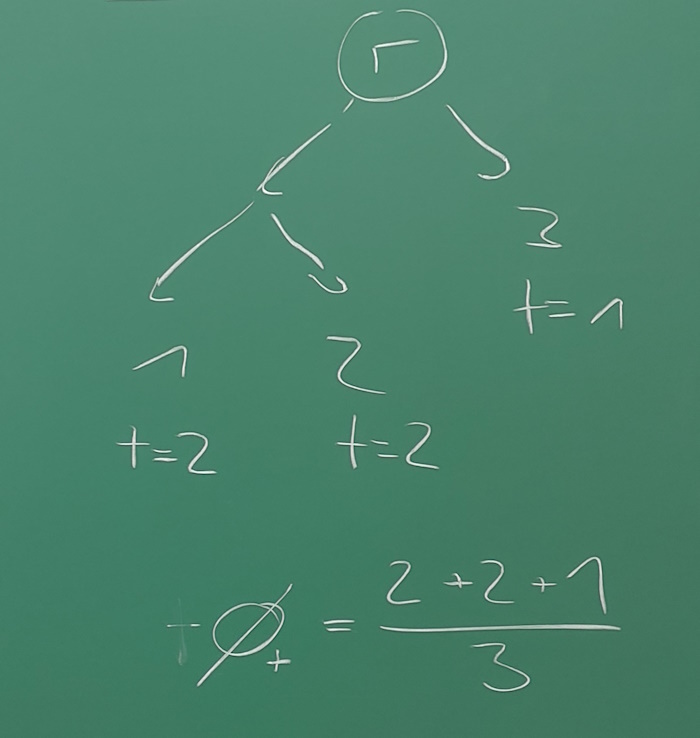 r
3
t=1
1 2
t=2 t=2
Ø_t = (2+2+1)/3